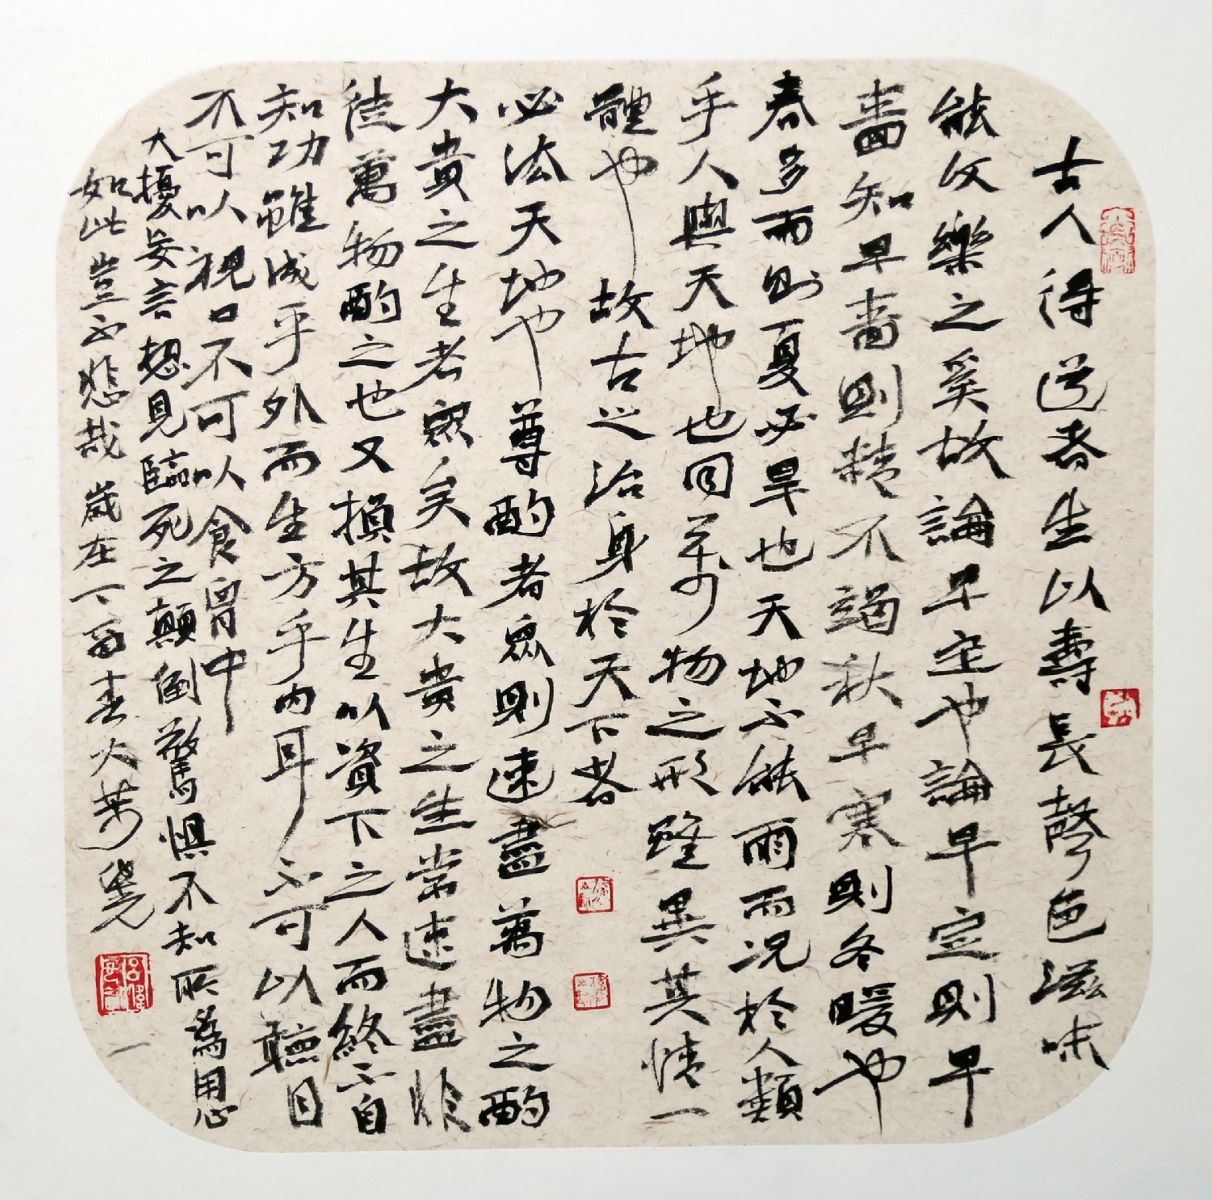 古人得道者生以壽長聲色滋味
能久樂之奚故論早定也論早定則早
嗇知早嗇則精不竭秋早寒則冬暖也
春多雨則夏必旱也天地不能兩而況於人類
乎人與天地也同萬物之形雖異其情一
體也故古之治身於天下者
必法天地也尊酌者眾則速盡萬物之酌
大貴之生者眾矣故大貴之生常速盡非
徒萬物酌之也又損其生以資下之人而終不自
知功雖成乎外而生方乎內耳不可以聽目
不可以視口不可以食胷中
大擾妄言想見臨死之顛倒驚懼不知所為用思
如此豈不悲哉歲在丁酉春大